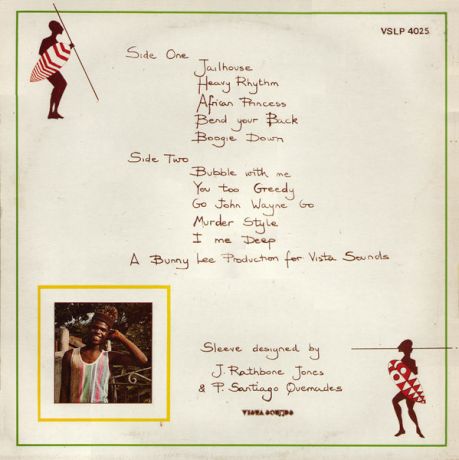 VSLP 4025
Side One
Jailhouse
Heavy Rhythm
African Princess
Bend your Back
Boogie Down
Side Two
Bubble with me
You too Greedy
Go John Wayne Go
Murder Style
I me Deep
A Bunny Lee Production for Vista Sounds
Sleeve designed by
J. Rathbone Jones
& P. Santiago Quemades
VISTA SOUNDS